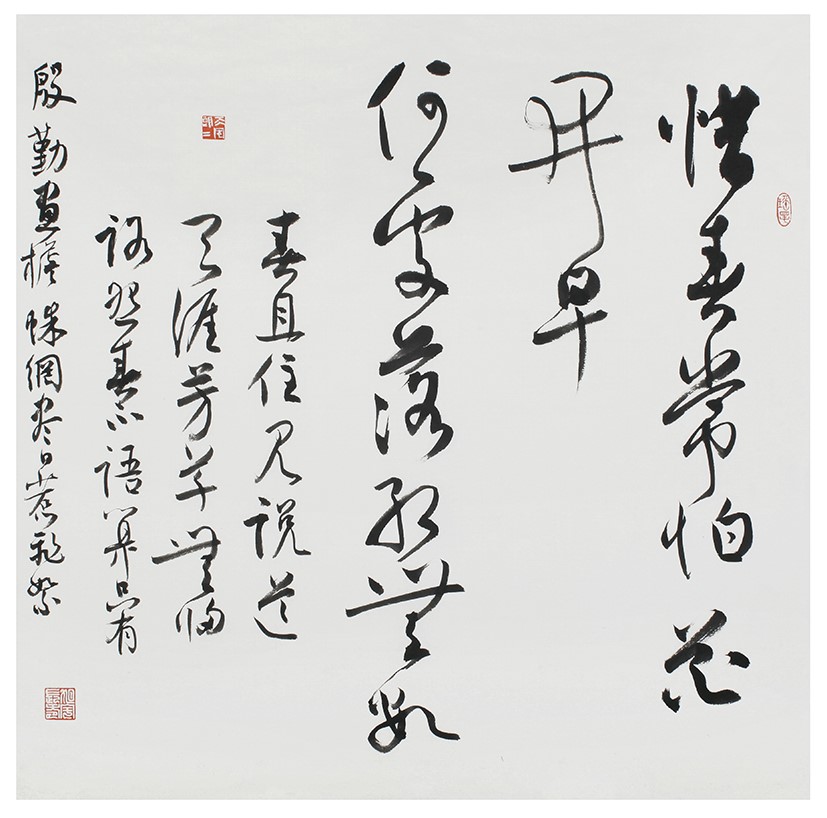 惜春常怕花
開早
何落紅無數
春且住見說道
天涯芳草無歸
路怨春不語算只有
殷勤畫檐蛛網盡日惹飛絮